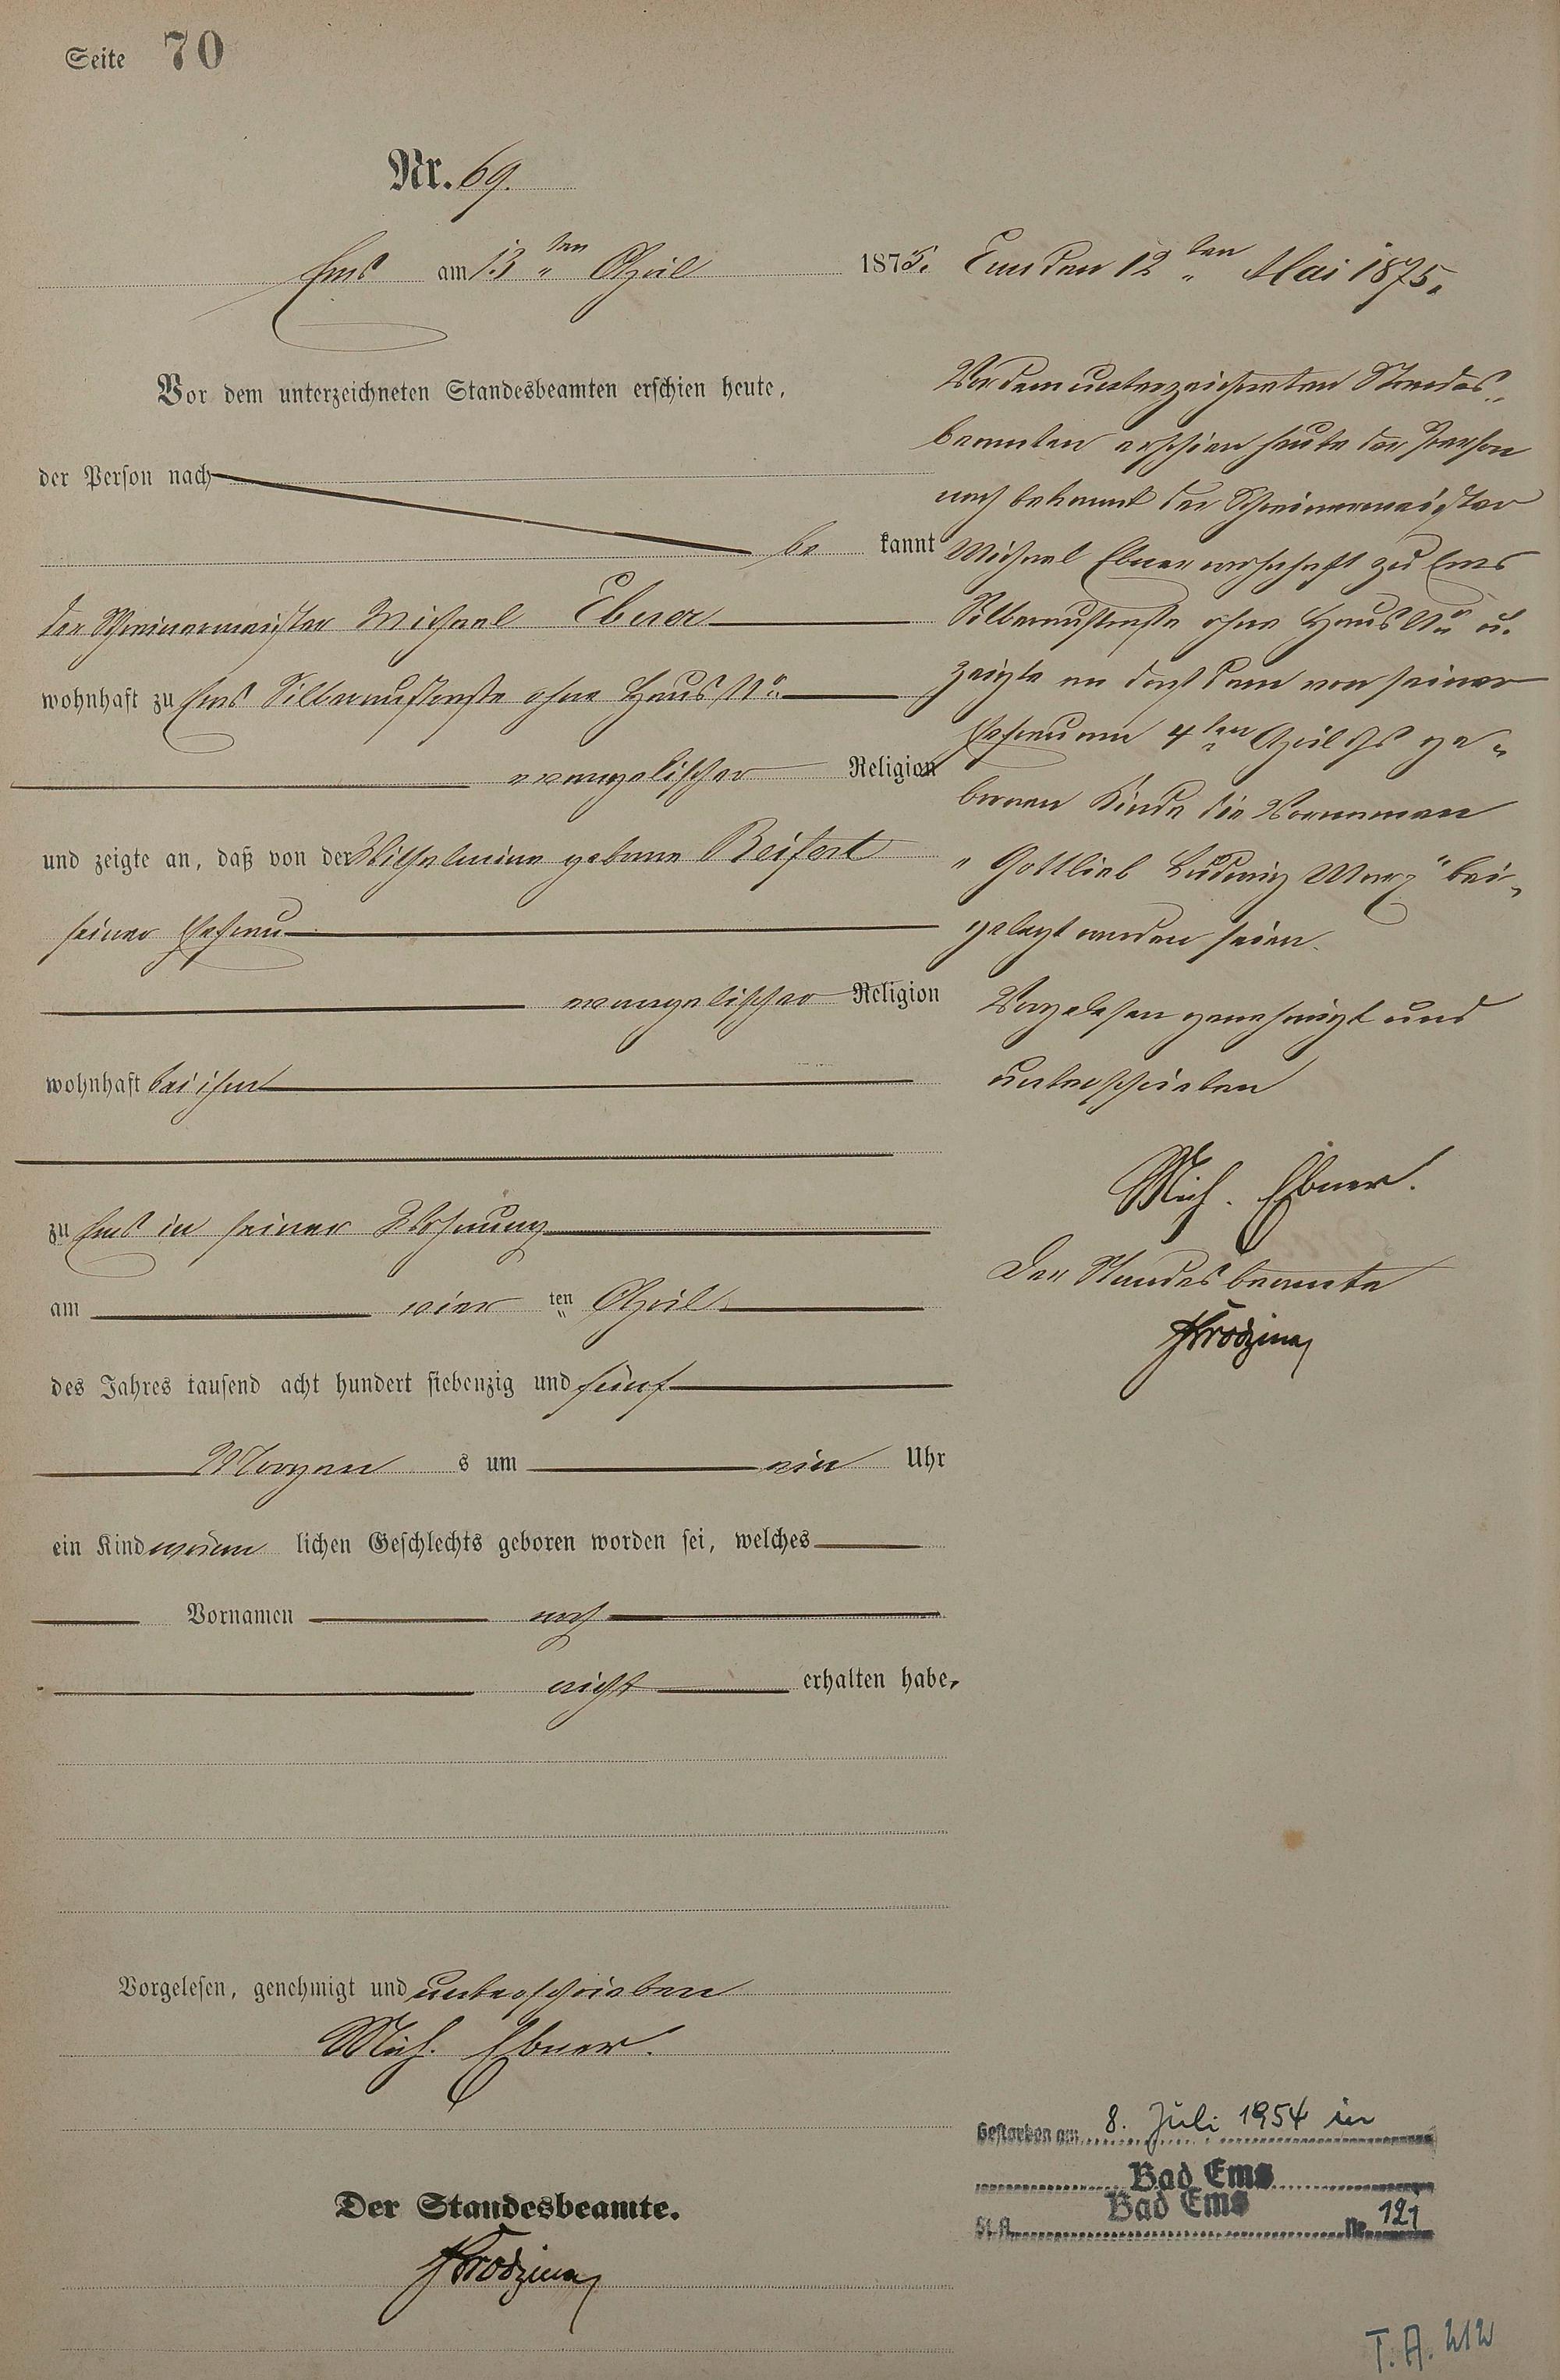 Seite 70
Nr. 69.
Ems am 13ten April 1875.
Vor dem unterzeichneten Standesbeamten erschien heute,
der Person nach
be kannt
der Schreinermeister Michael Ebner
wohnhaft zu Ems Silberaustraße ohne Haus No.
evangelischer Religion
und zeigte an, daß von der Wilhelmine geborne Reifert
seiner Ehefrau
evangelischer Religion
wohnhaft bei ihm
zu Ems in seiner Wohnung
am vier ten April
des Jahres tausend acht hundert siebenzig und fünf
Morgen s um ein Uhr
ein Kind männ lichen Geschlechts geboren worden sei, welches
Vornamen noch
nicht erhalten habe.
Vorgelesen, genehmigt und unterschrieben
Mich. Ebner.
Der Standesbeamte.
Ems den 12ten Mai 1875.
Vor dem unterzeichneten Standes-
beamten erschien heute der Person
nach bekannt der Schreinermeister
Michael Ebner wohnhaft zu Ems
Silberaustraße ohne Haus No u.
zeigte an daß dem von seiner
Ehefrau am 4ten April ds ge-
bornen Kinde die Vornamen
"Gottlieb Ludwig Marx" bei-
gelegt worden seien.
Vorgelesen genehmigt und
unterschrieben
Mich. Ebner.
Der Standesbeamte
Gestorben am 8. Juli 1954 in
Bad Ems
Bad Ems
St. A. Nr. 121
T. A. 212